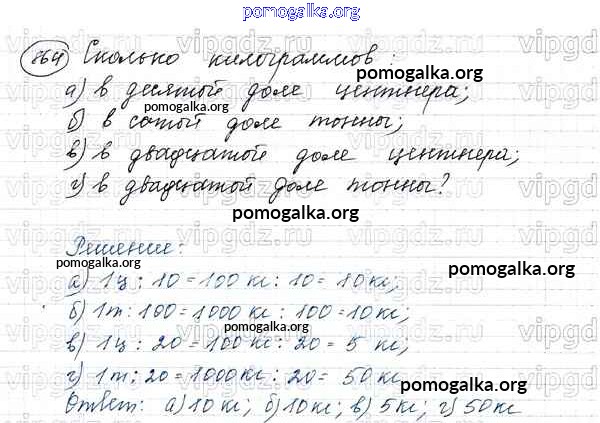 pomogalka.org
864 Сколько килограммов:
а) в десятой доле центнера;
б) в сотой доле тонны;
в) в двадцатой доле центнера;
г) в двадцатой доле тонны?
Решение:
а) 1ц : 10 = 100 кг : 10 = 10 кг;
б) 1т : 100 = 1000 кг : 100 = 10 кг;
в) 1ц : 20 = 100 кг : 20 = 5 кг;
г) 1т : 20 = 1000 кг : 20 = 50 кг
Ответ: а) 10 кг; б) 10 кг; в) 5 кг; г) 50 кг
pomogalka.org
pomogalka.org
pomogalka.org
pomogalka.org
pomogalka.org
pomogalka.org
pomogalka.org
vipgdz.ru